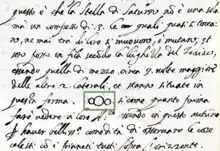 questo è che la stella di Saturno non è una sola
ma un composto di 3. le quali quasi si toccano
ne mai tra di loro si muovono, o mutano, et
son poste in fila secondo la lunghezza del zodiaco,
essendo quella di mezzo circa 3 volte maggiore
delle altre 2 laterali, et stanno situate in
questa forma oOo si come quanto prima
farò vedere
essendo in questo autunno
per havere bellissima comodità di osservare le cose
celesti con i pianeti tutti sopra l'orizzonte